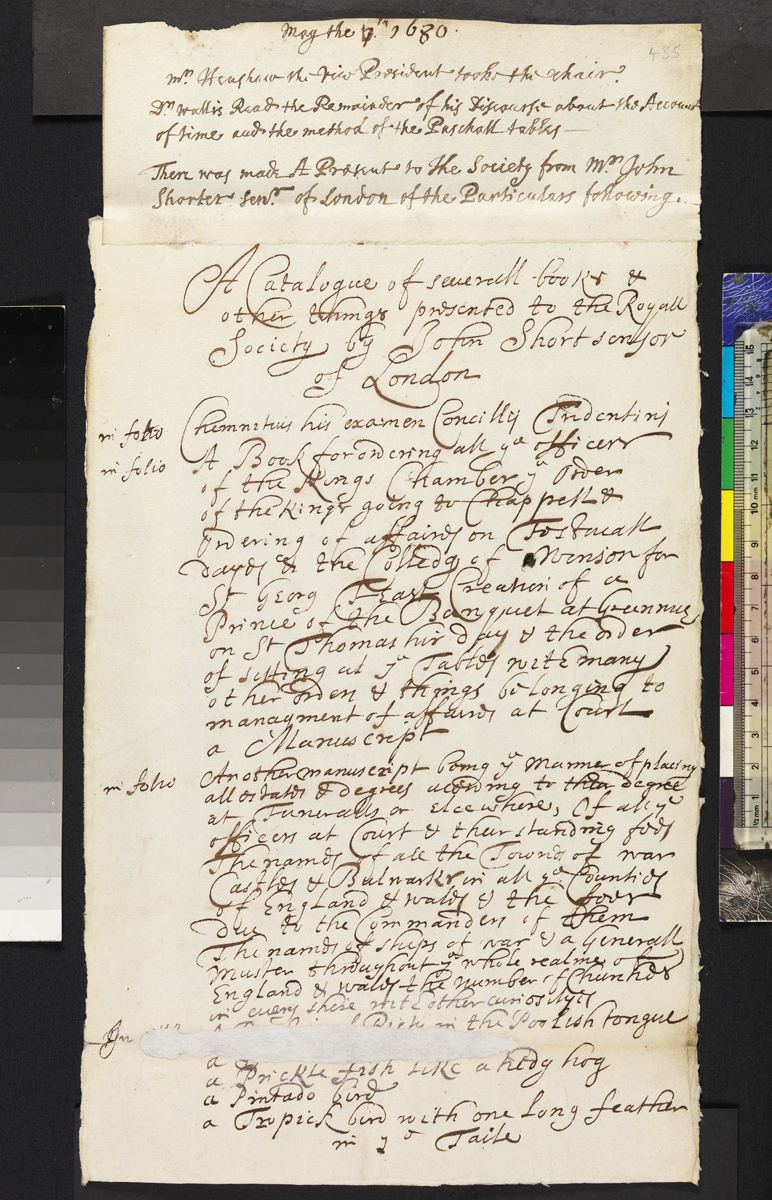 May the 7.th 1680.
435
Mr. Henshaw the Vice President tooke the chair.
Dr. Wallis Read the Remainder of his Discourse about the Account
of time and the method of the Paschall tables —
There was made A Present to the Society from Mr. John
Shorter senr. of London of the Particulars following.
A Catalogue of severall books &
other things presented to the Royall
Society by John Short senjor
of London
in folio Chemnitius his examen Concillij Tridentini
in folio A Book for ordering all ye officers
of the Kings Chamber ye Order
of the Kings going to Chappell &
Ordering of affaires on Festivall
Dayes & the Colledg of Winsor for
St Georg Feast Creation of a
Prince of the Banquet at Greenwig
on St Thomas his day & the order
of sitting at ye Tables with many
other orders & things belonging to
managment of affaires at Court
a Manuscript
in folio Another manuscript being ye Manner of placing
all estates & degrees acording to their degree
at Funeralls or elcewhere, Of all ye
officers at Court & their standing fees
The names of all the Townes of war
Castles & Bulwarks in all ye Counties
of England & wales & the fees
due to the Commanders of them
The names of ships of war & a Generall
Muster throughout ye whole realme of
England & wales the number of Churches
in every shire with other curiosityes
In
in the Poolish tongue
a
a Prickle fish like a hedg hog
a Pintado bird
a Tropick bird with one long feather
in ye Taile